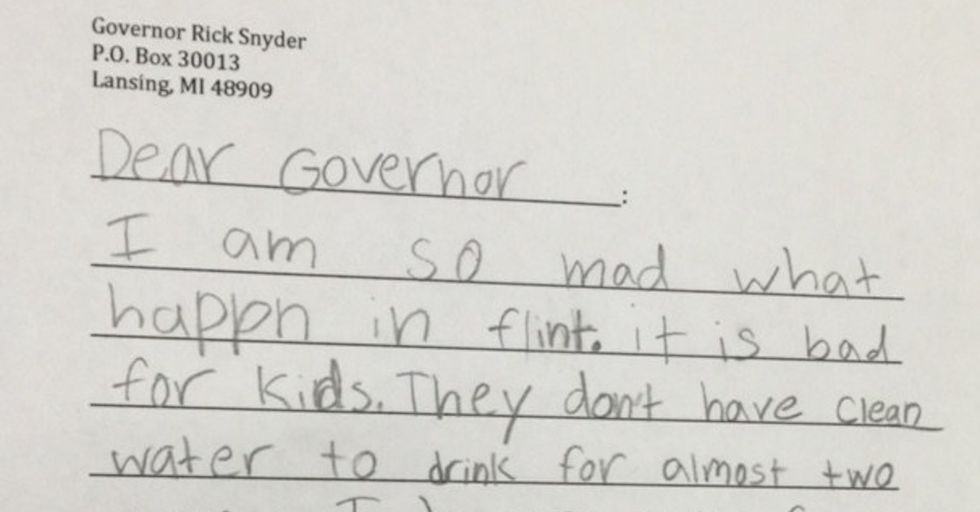 Governor Rick Snyder
P.O. Box 30013
Lansing, MI 48909
Dear Governor :
I am so mad what
happn in flint. it is bad
for kids. They don't have clean
water to drink for almost two